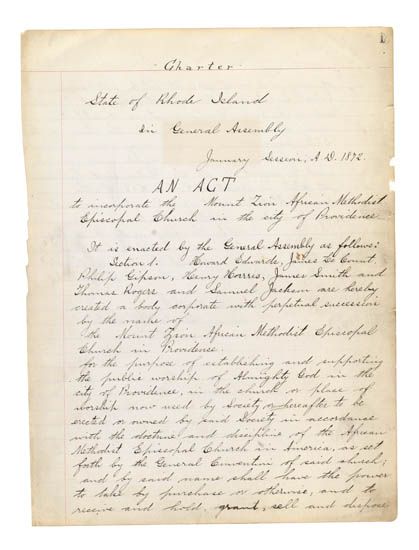 1
Charter
State of Rhode Island
In General Assembly
January Session, A. D. 1872.
AN ACT
to incorporate the Mount Zion African Methodist
Episcopal Church in the city of Providence
It is enacted by the General Assembly as follows:
Section 1. Howard Edwards, James Le Count,
Philip Gipson, Henry Morris, James Smith and
Thomas Rogers and Samuel Jackson are hereby
created a body coporate with perpetual succession
by the name of
the Mount Zion African Methodist Episcopal
Church in Providence.
for the purpose of establishing and supporting
the public worship of Almighty God in the
city of Providence, in the church or place of
worship now used by Society or hereafter to be
erected or owned by said Society in accordance
with the doctrine and discipline of the African
Methodist Episcopal Church in America, as set
forth by the General Convention of said church;
and by said name shall have the power
to take by purchase or otherwise, and to
receive and hold, grant, sell and dispose